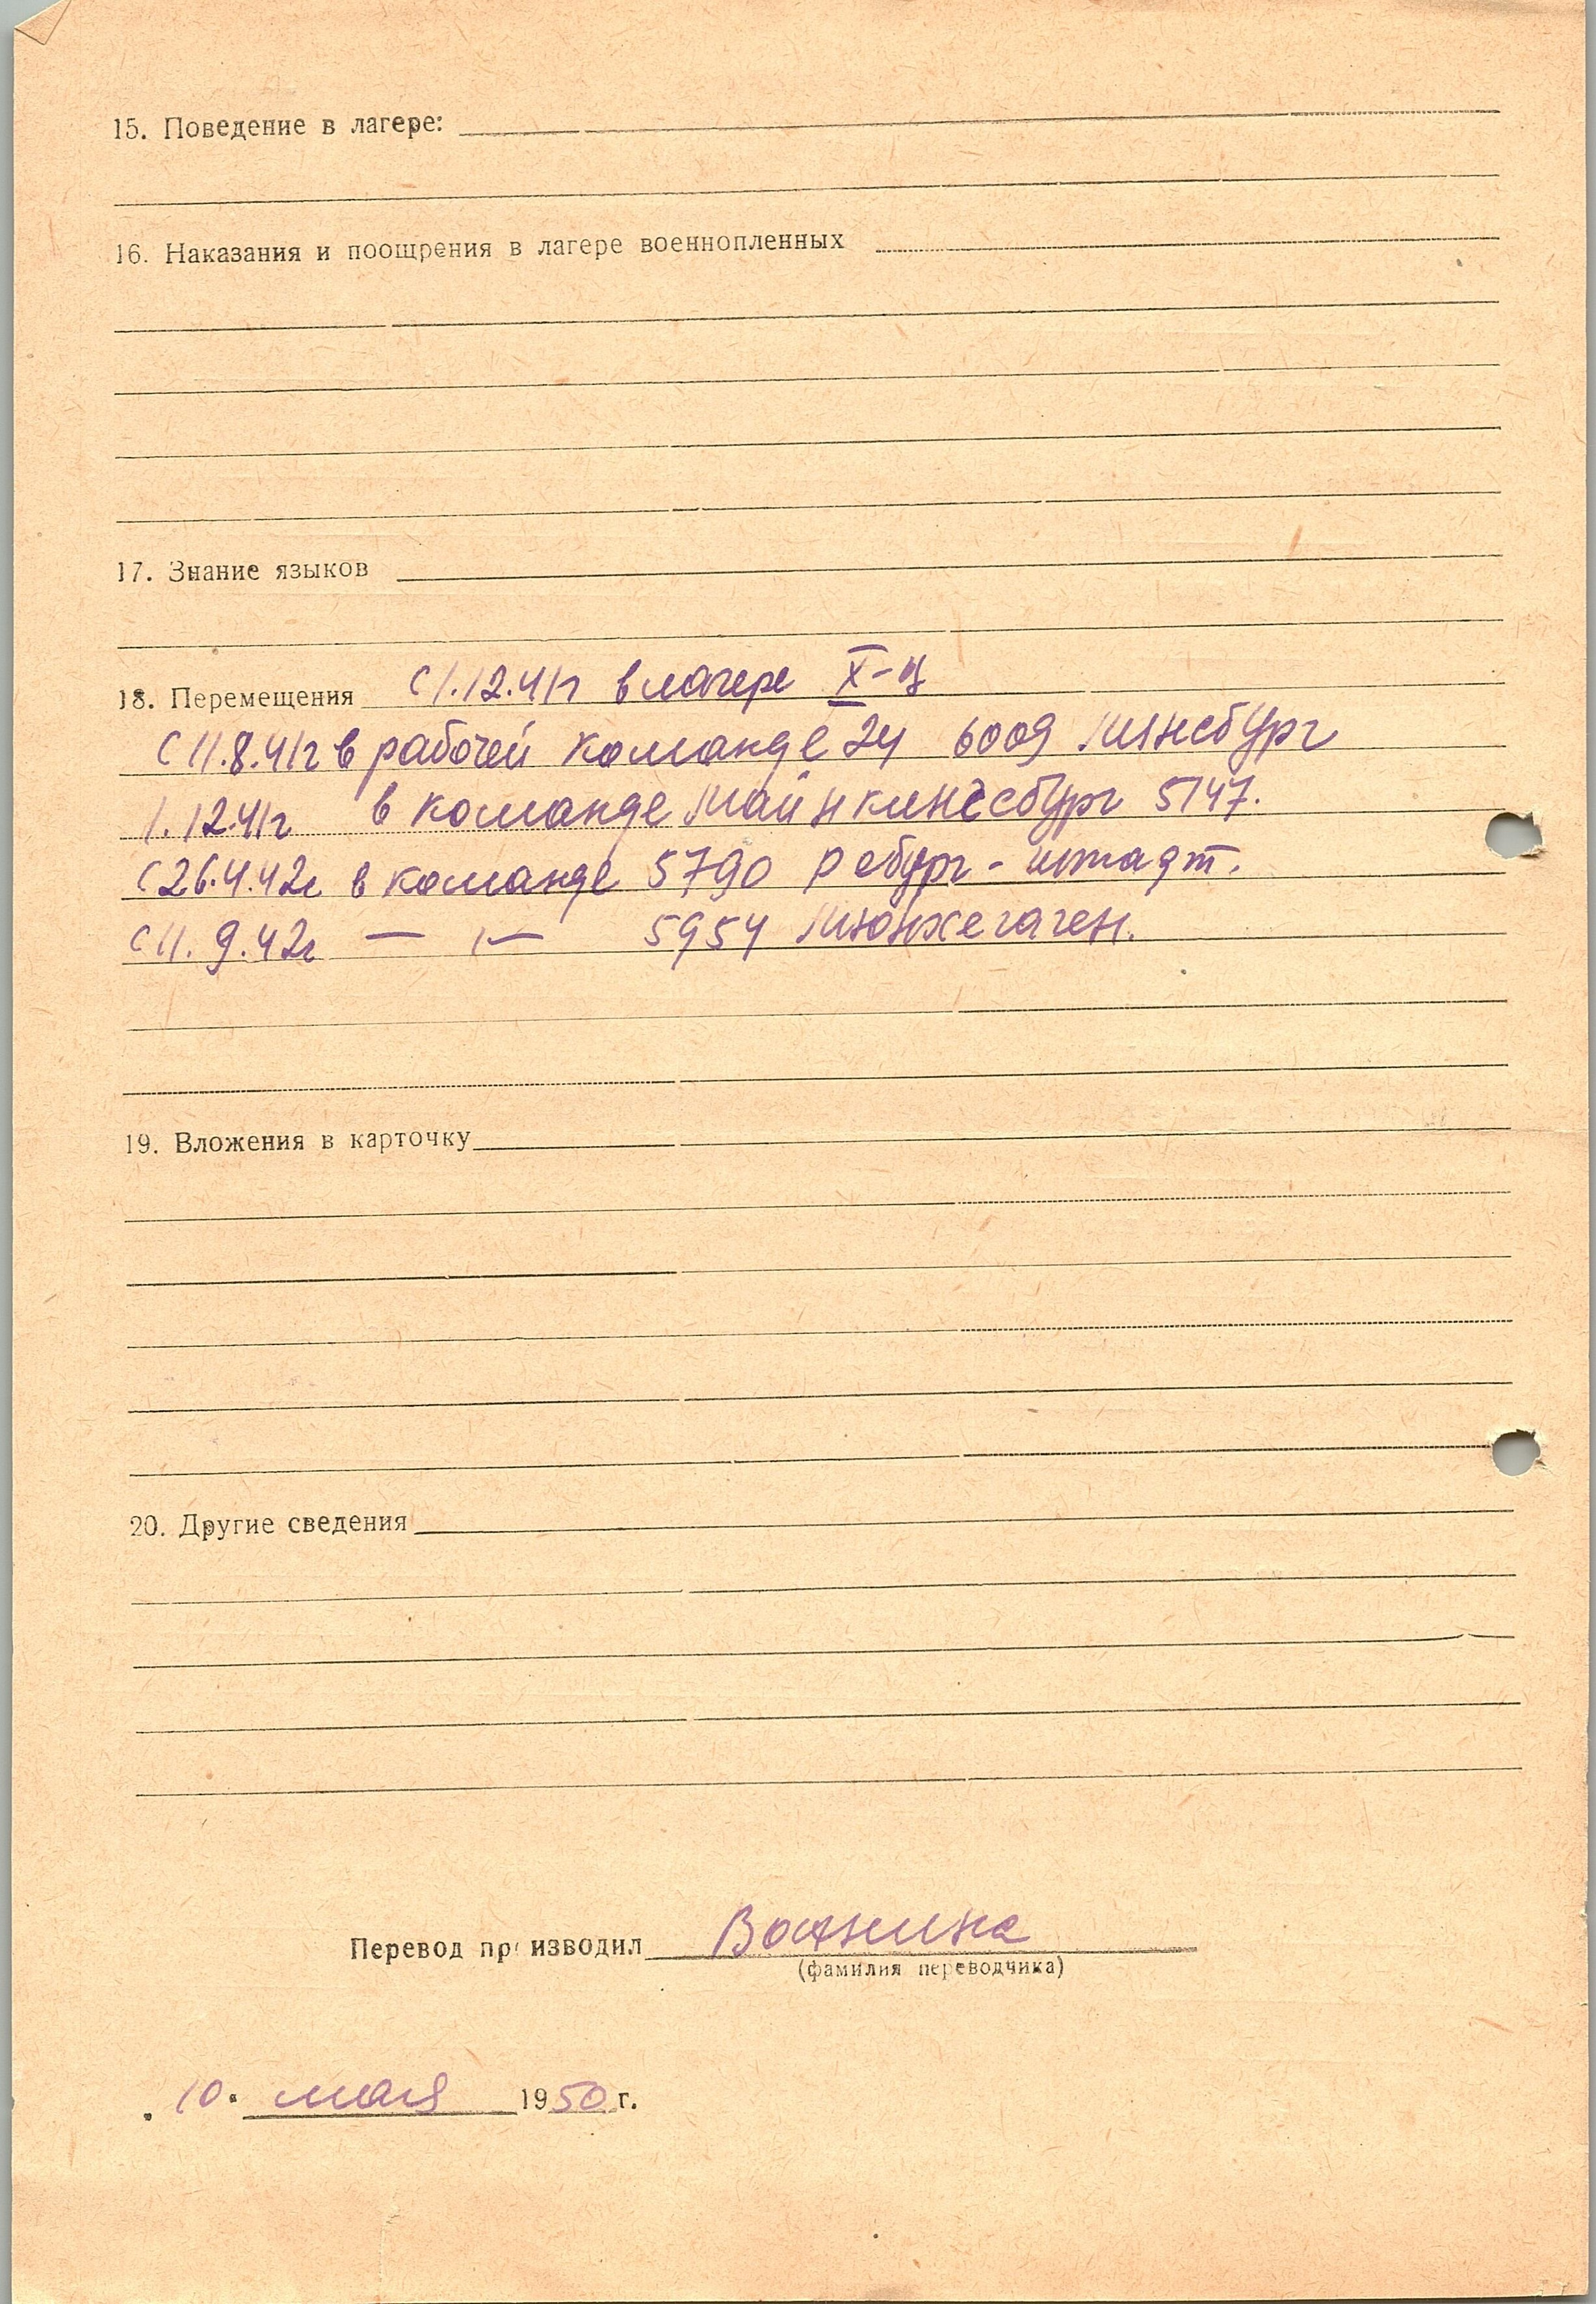 15. Поведение в лагере:
16. Наказания и поощрения в лагере военнопленных
17. Знание языков
18. Перемещения с 1.12.41г в лагере X-ц
с 11.8.41г в рабочей команде 24 6009
1.12.41г в команде 5147.
с 26.4.42г в команде 5790 Ребург-штадт.
с 11.9.42г — "— 5954 Мюнхегаген.
19. Вложения в карточку
20. Другие сведения
Перевод производил Ванина
(фамилия переводчика)
„10" мая 1950 г.